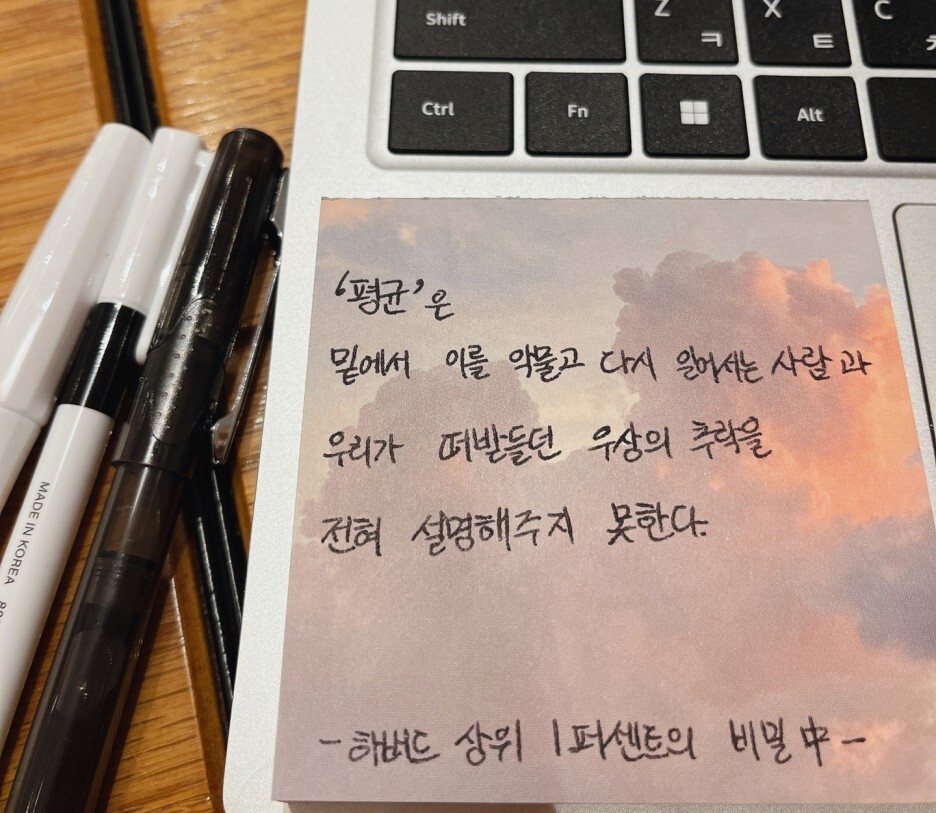 Shift
Z ㅋ
X ㅌ
C
Ctrl
Fn
Alt
MADE IN KOREA
'평균'은
밑에서 이를 악물고 다시 일어서는 사람과
우리가 떠받들던 우상의 추락을
전혀 설명해주지 못한다.
- 하버드 상위 1퍼센트의 비밀 中 -